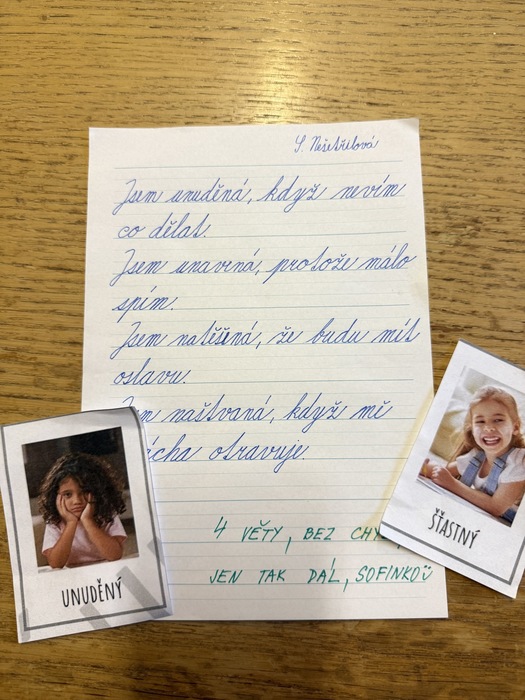 S. Nešetřilová
Jsem unuděná, když nevím
co dělat.
Jsem unavená, protože málo
spím.
Jsem natěšená, že budu mít
oslavu.
naštvaná, když mě
otravuje.
4 VĚTY, BEZ
JEN TAK DÁL, SOFINKO
UNUDĚNÝ
ŠŤASTNÝ